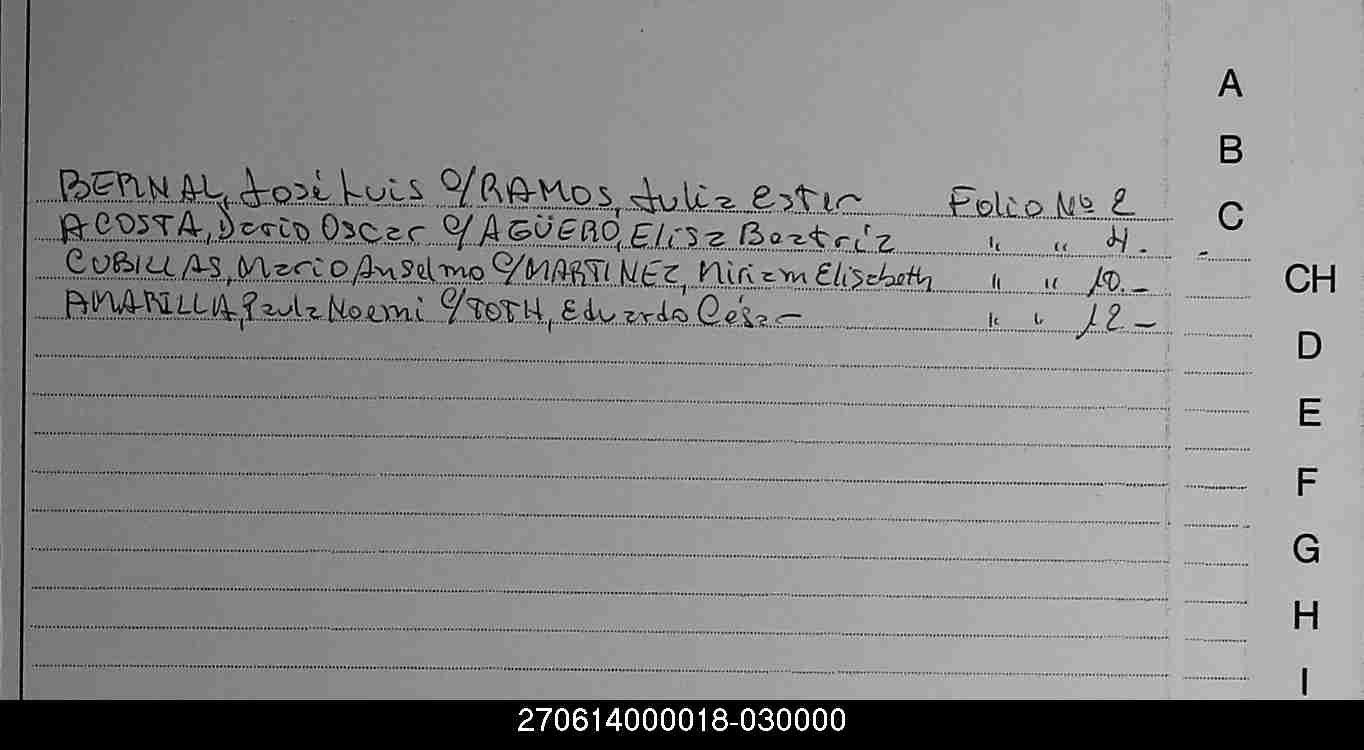 BERNAL, José Luis C/RAMOS, Julia Ester Folio Nº 2
ACOSTA, Dario Oscar C/AGÜERO, Elisa Beatríz " " 4.
CUBILLAS, Mario Anselmo C/MARTINEZ, Miriam Elisabeth " " 10.-
AMARILLA, Paula Noemi C/TOTH, Eduardo César " " 12-
A
B
C
CH
D
E
F
G
H
I
270614000018-030000